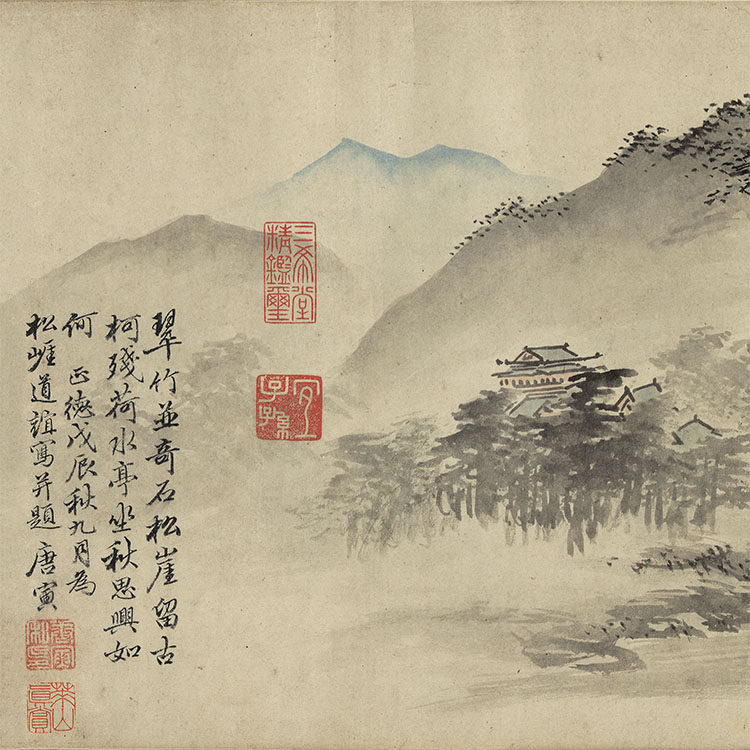 翠竹並奇石松崖留古
柯殘荷水亭坐秋思興如
何 正德戊辰秋九月為
松崖道誼寫并題 唐寅
三希堂
精鑑璽
宜
子孫